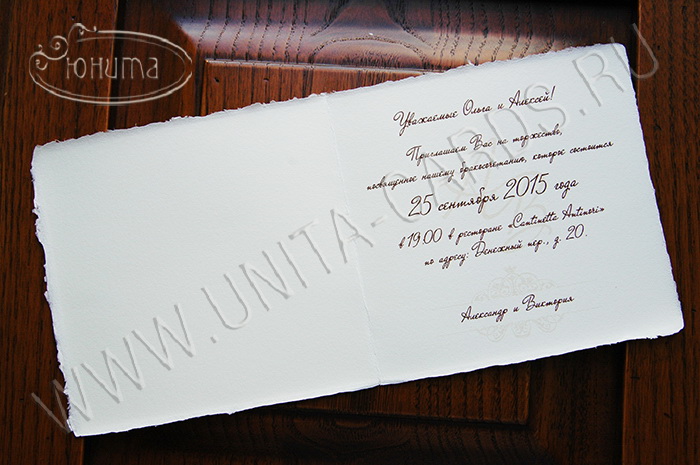 Юнита
Уважаемые Ольга и Алексей!
Приглашаем Вас на торжество,
посвященное нашему бракосочетанию, которое состоится
25 сентября 2015 года
в 19.00 в ресторане «Cantinetta Antinori»
по адресу: Денежный пер., д. 20.
Александр и Виктория
WWW.UNITA-CARDS.RU